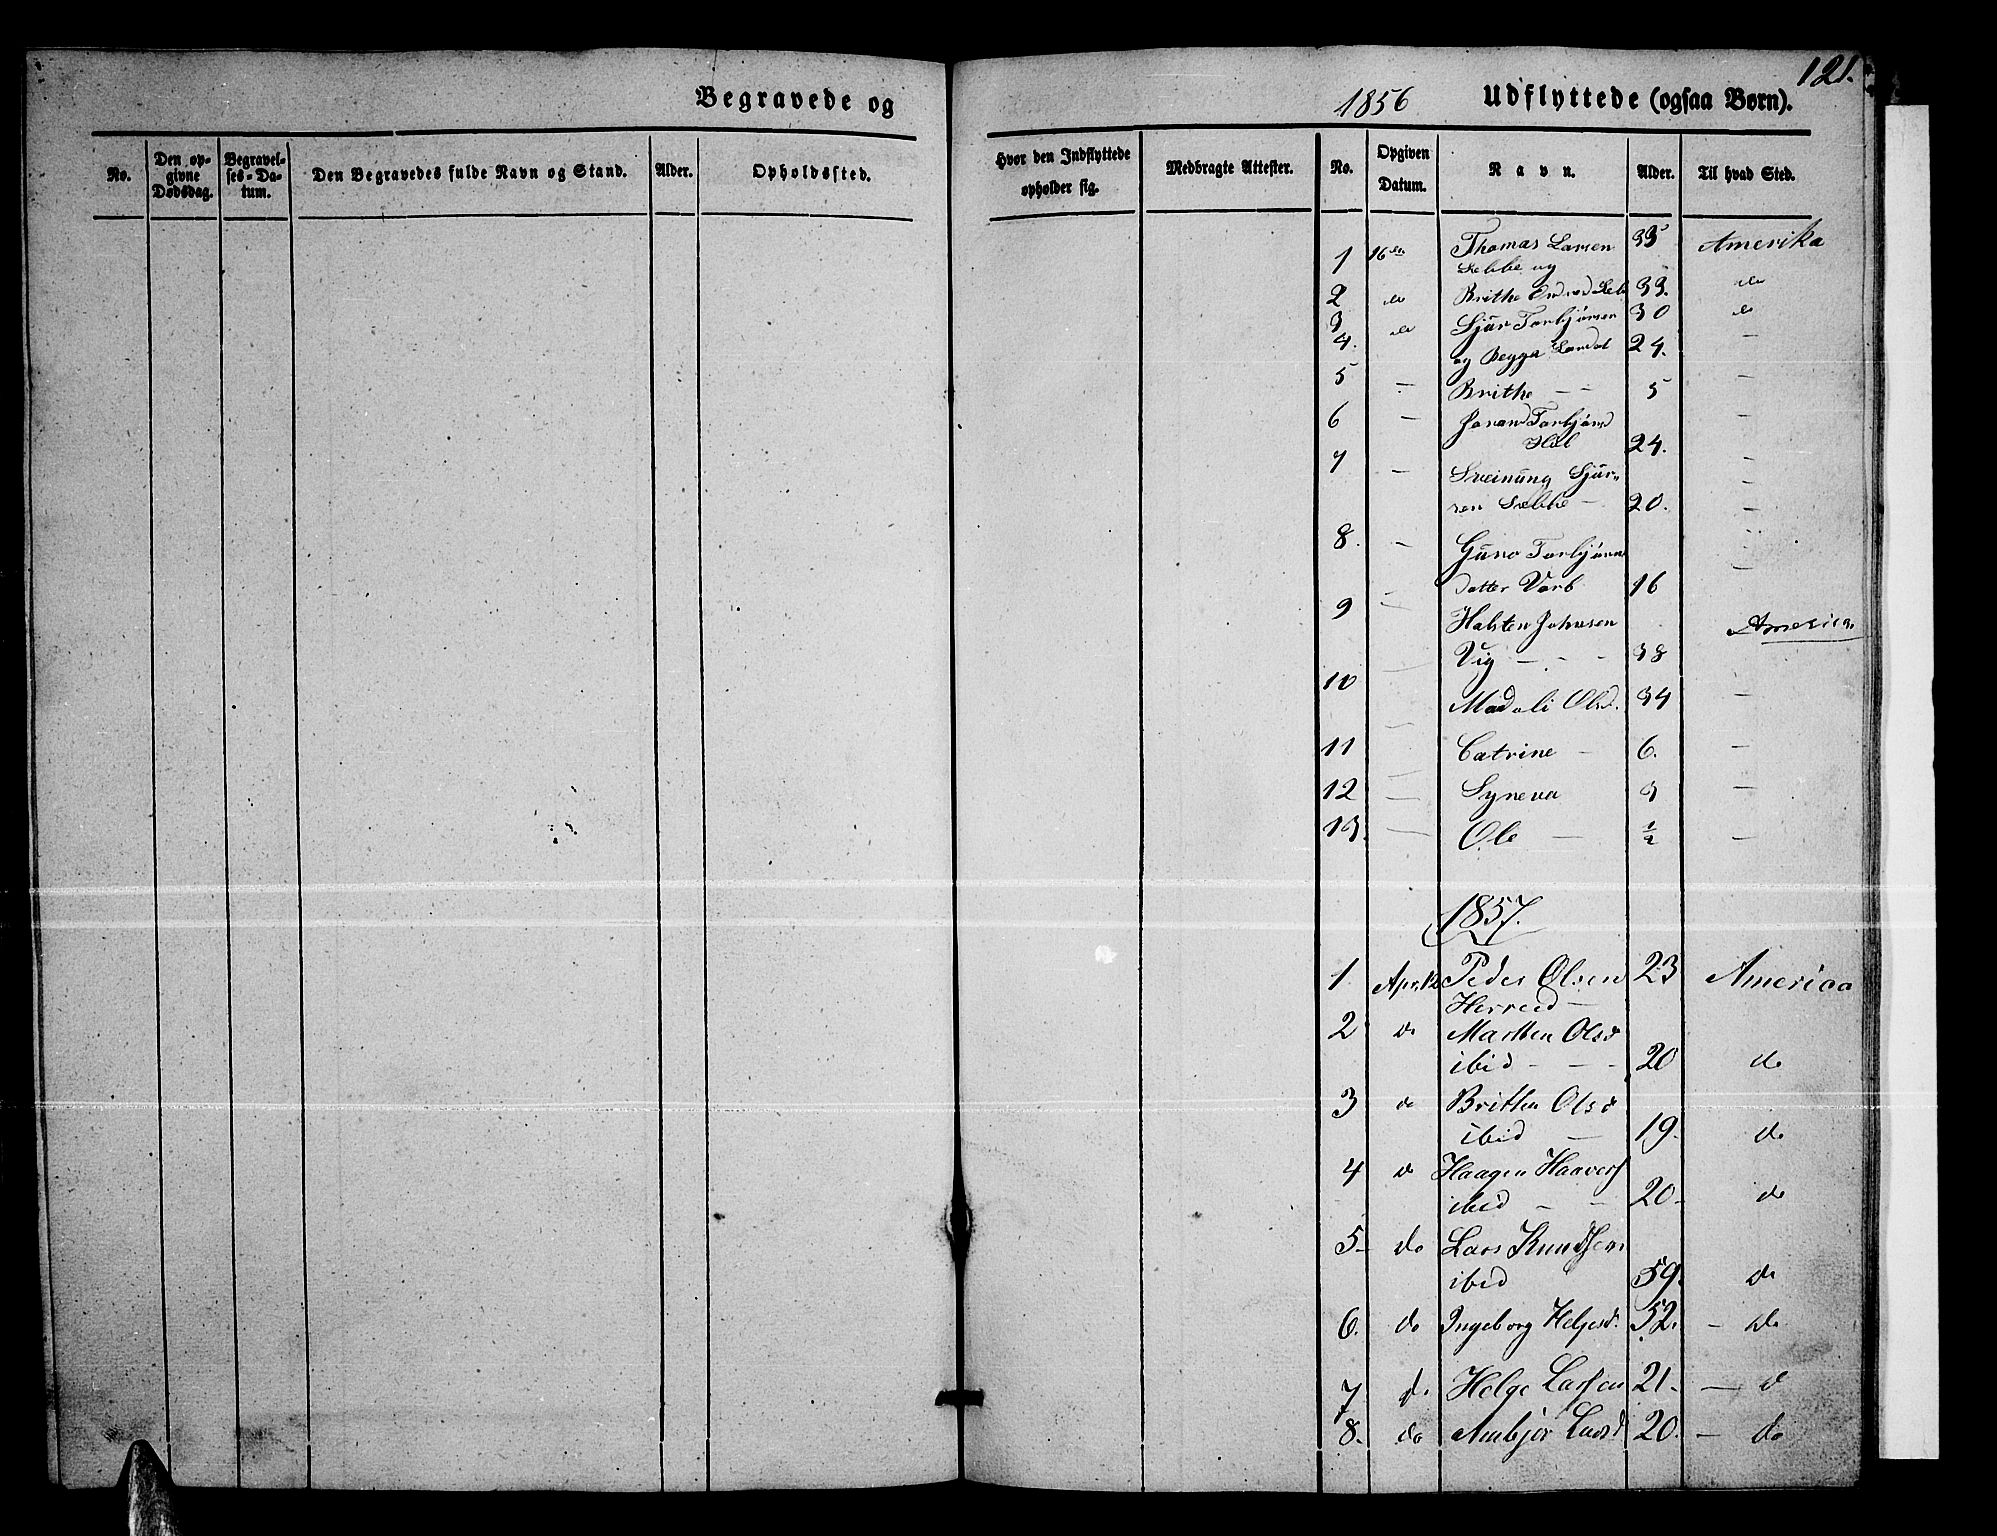 121.
Begravede og
1856 Udflyttede (ogsaa Børn).
No. Den opgivne Dødsdag. Begravelses-Datum. Den Begravedes fulde Navn og Stand. Alder. Opholdssted.
Hvor den Indflyttede opholder sig. Medbragte Attester. No. Opgiven Datum. Navn. Alder. Til hvad Sted.
1 16de Thomas Larsen 33 Amerika
Sebbe og
2 do Brithe 33. do
3 do Sjur Torbjørnsen 30 do
4. og Begga 24. —
5 — Brithe — — 5 —
6 — Joran Torbjørnsd
24. —
7 — Sveinung Sjur- —
sen Sebbe — 20. —
8. — Guro Torbjørns —
datter Varb 16 —
9 — Halsten Johnsen America
Vig — - - 38
10 — Madeli Olsd. 34 —
11 — Catrine — 6. —
12 — Syneva 3 —
13. — Ole — 1/2 —
1857.
1 Apr. 12 Peder Olsen 23 America
Herreid —
2 do Marthen Olsd
ibid - - - 20 do
3 do Brithen Olsd
ibid — 19. do
4 do Haagen Haavers
ibid - - 20- do
5- do Lars Knudsen
ibid 59. do
6. do Ingeborg Helgesd. 52. - do
7 d. Helge Larsen 21. — d
8. do Ambjør Larsd 20. — do